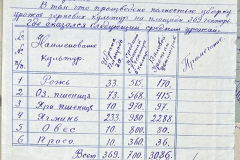 В том что произведено полностью уборку
урожая зерновых культур на площади 369 гектар.
Где оказался следующий средний урожай.
№
п/п
Наименование
Культур.
Примечание
1 Рожь 33. 515. 170.
2 Оз. пшеница 73. 568. 415.
3 Яра пшеница 10 970. 97.
4 Ячмень 233 980 2288
5 Овес 10 800. 80.
6 Просо. 10 360. 36.
Всего 369. 700. 3086.